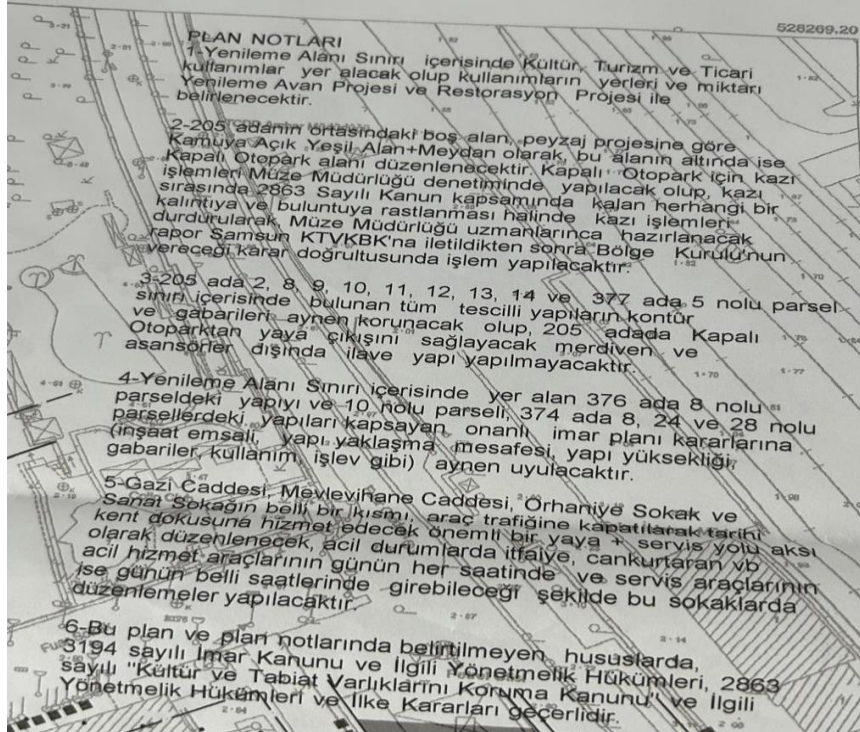 528269.20
PLAN NOTLARI
1-Yenileme Alanı Sınırı içerisinde Kültür, Turizm ve Ticari
kullanımlar yer alacak olup kullanımların yerleri ve miktarı
Yenileme Avan Projesi ve Restorasyon Projesi ile
belirlenecektir.
2-205 adanın ortasındaki boş alan, peyzaj projesine göre
Kamuya Açık Yeşil Alan+Meydan olarak, bu alanın altında ise
Kapalı Otopark alanı düzenlenecektir. Kapalı Otopark için kazı
işlemleri Müze Müdürlüğü denetiminde yapılacak olup, kazı
sırasında 2863 Sayılı Kanun kapsamında kalan herhangi bir
kalıntıya ve buluntuya rastlanması halinde kazı işlemleri
durdurularak, Müze Müdürlüğü uzmanlarınca hazırlanacak
rapor Samsun KTVKBK'na iletildikten sonra Bölge Kurulu'nun
vereceği karar doğrultusunda işlem yapılacaktır.
3-205 ada 2, 8, 9, 10, 11, 12, 13, 14 ve 377 ada 5 nolu parsel
sınırı içerisinde bulunan tüm tescilli yapıların kontür
ve gabarileri aynen korunacak olup, 205 adada Kapalı
Otoparktan yaya çıkışını sağlayacak merdiven ve
asansörler dışında ilave yapı yapılmayacaktır.
4-Yenileme Alanı Sınırı içerisinde yer alan 376 ada 8 nolu
parseldeki yapıyı ve 10 nolu parseli, 374 ada 8, 24 ve 28 nolu
parsellerdeki yapıları kapsayan onanlı imar planı kararlarına
(inşaat emsali, yapı yaklaşma mesafesi, yapı yüksekliği,
gabariler, kullanım, işlev gibi) aynen uyulacaktır.
5-Gazi Caddesi, Mevlevihane Caddesi, Orhaniye Sokak ve
Sanat Sokağın belli bir kısmı, araç trafiğine kapatılarak tarihi
kent dokusuna hizmet edecek önemli bir yaya + servis yolu aksı
olarak düzenlenecek, acil durumlarda itfaiye, cankurtaran vb
acil hizmet araçlarının günün her saatinde ve servis araçlarının
ise günün belli saatlerinde girebileceği şekilde bu sokaklarda
düzenlemeler yapılacaktır.
6-Bu plan ve plan notlarında belirtilmeyen hususlarda,
3194 sayılı İmar Kanunu ve İlgili Yönetmelik Hükümleri, 2863
sayılı "Kültür ve Tabiat Varlıklarını Koruma Kanunu" ve İlgili
Yönetmelik Hükümleri ve İlke Kararları geçerlidir.